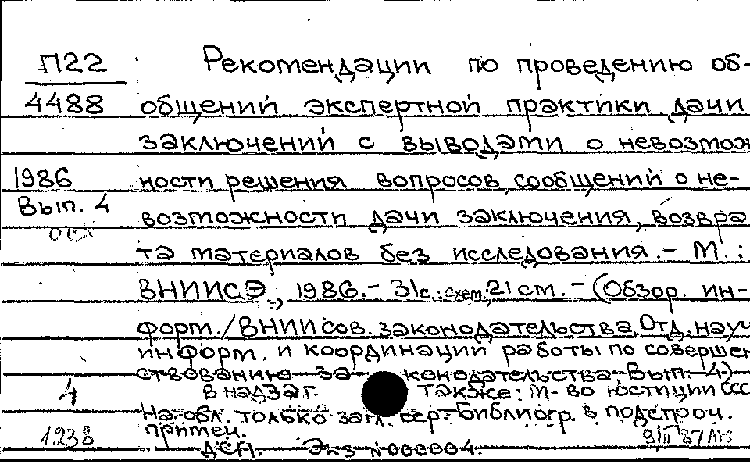 П22 Рекомендации по проведению об-
4488 общений экспертной практики дачи
заключений с выводами о невозмож
1986 ности решения вопросов, сообщений о не-
Вып. 4 возможности дачи заключения, возвра
та материалов без исследования. - М. :
ВНИИСЭ, 1986. - 31с.: схем, 21 ст. - (Обзор. ин-
форм. / ВНИИ сов. законодательства, Отд. науч
информ. и координации работы по совершен
ствованию за- конодательства. Вып. 4.)
4 В надзаг. также: М-во юстиции ССС
На обл. только загл. сер. - Библиогр. в подстроч.
1238 примеч.
ДСП. Экз N 000004.